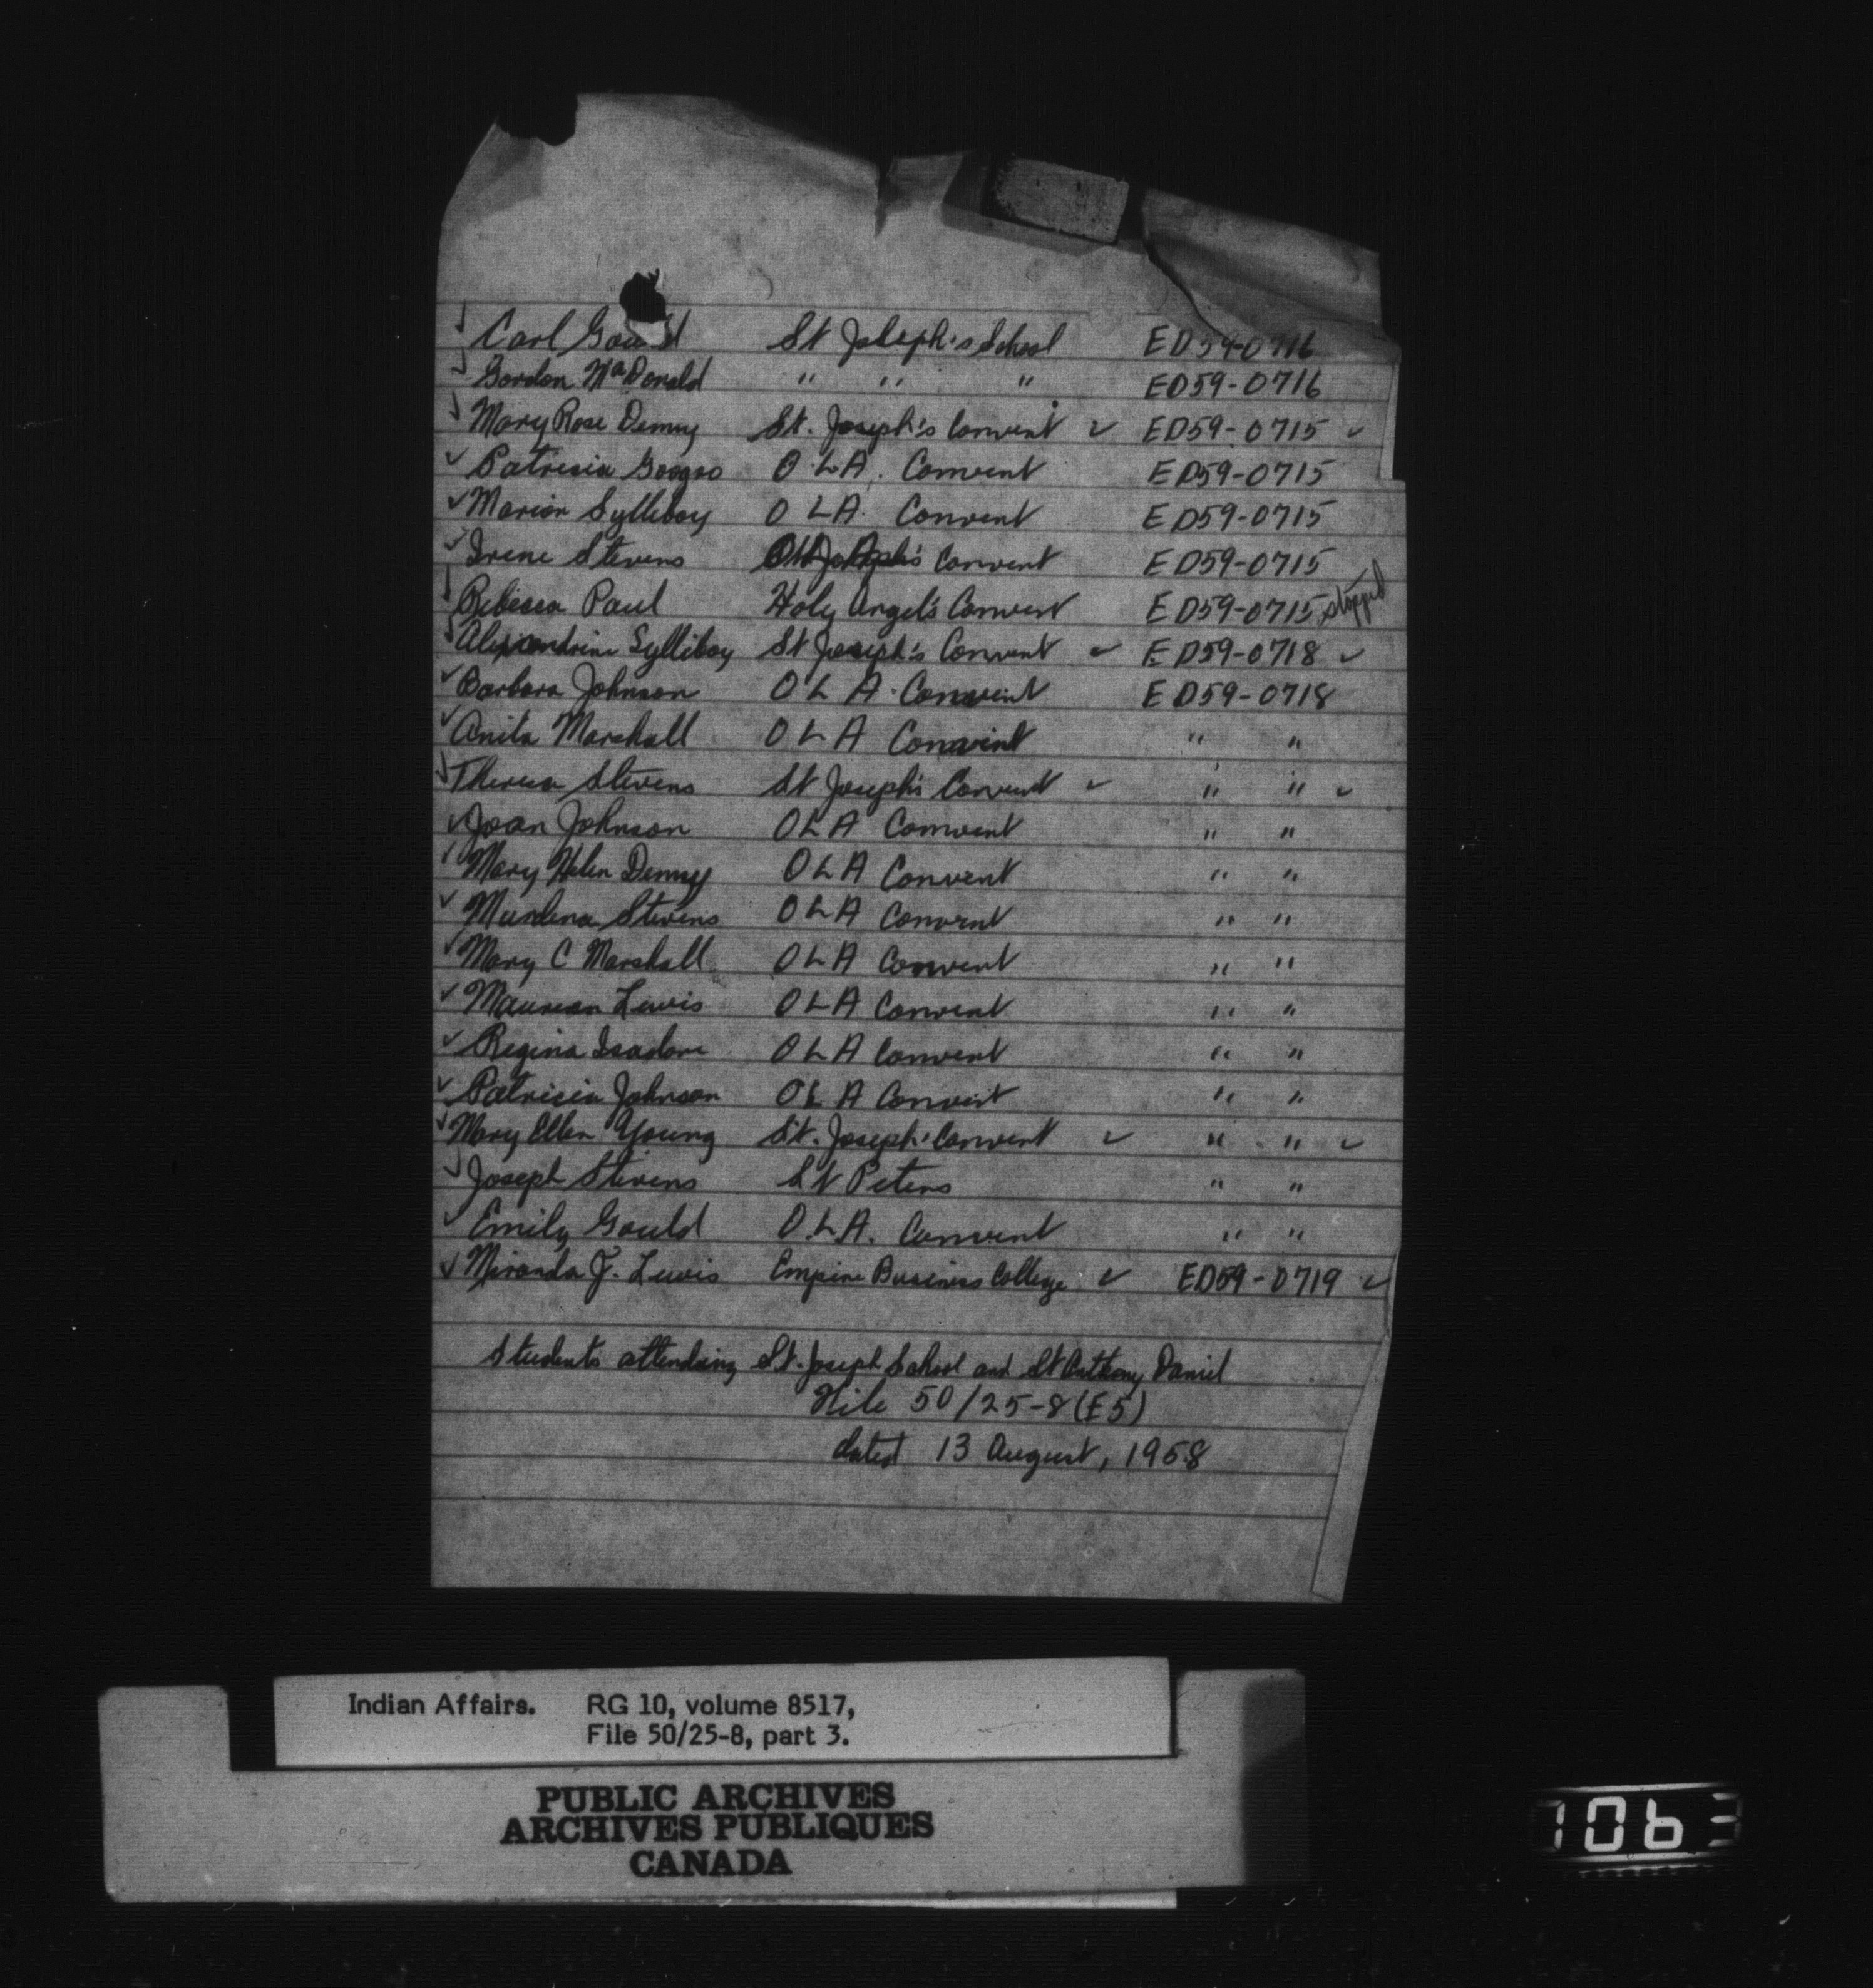 ✓ Carl Gould St Joseph's School ED59-0716
✓ Gordon McDonald " " " ED59-0716
✓ Mary Rose Denny St. Joseph's Convent ✓ ED59-0715 ✓
✓ Patricia Googoo O.L.A. Convent ED59-0715
✓ Marion Sylliboy O L A. Convent ED59-0715
✓ Irene Stevens St Joseph's Convent ED59-0715
✓ Rebecca Paul Holy Angel's Convent ED59-0715 stopped
✓ Alexandrine Sylliboy St Joseph's Convent ✓ ED59-0718 ✓
✓ Barbara Johnson O L A. Convent ED59-0718
✓ Anita Marshall O L A Convent " "
✓ Theresa Stevens St Joseph's Convent ✓ " " ✓
✓ Joan Johnson O L A Convent " "
✓ Mary Helen Denny O L A Convent " "
✓ Murdena Stevens O L A Convent " "
✓ Mary C Marshall O L A Convent " "
✓ Maureen Lewis O L A Convent " "
✓ Regina Isadore O L A Convent " "
✓ Patricia Johnson O L A Convent " "
✓ Mary Ellen Young St. Joseph' Convent ✓ " " ✓
✓ Joseph Stevens St Peters " "
✓ Emily Gould O.L.A. Convent " "
✓ Miranda J. Lewis Empire Business College ✓ ED59-0719 ✓
Students attending St. Joseph School and St Anthony Daniel
File 50/25-8 (E5)
dated 13 August, 1958
Indian Affairs. RG 10, volume 8517,
File 50/25-8, part 3.
PUBLIC ARCHIVES
ARCHIVES PUBLIQUES
CANADA
1063